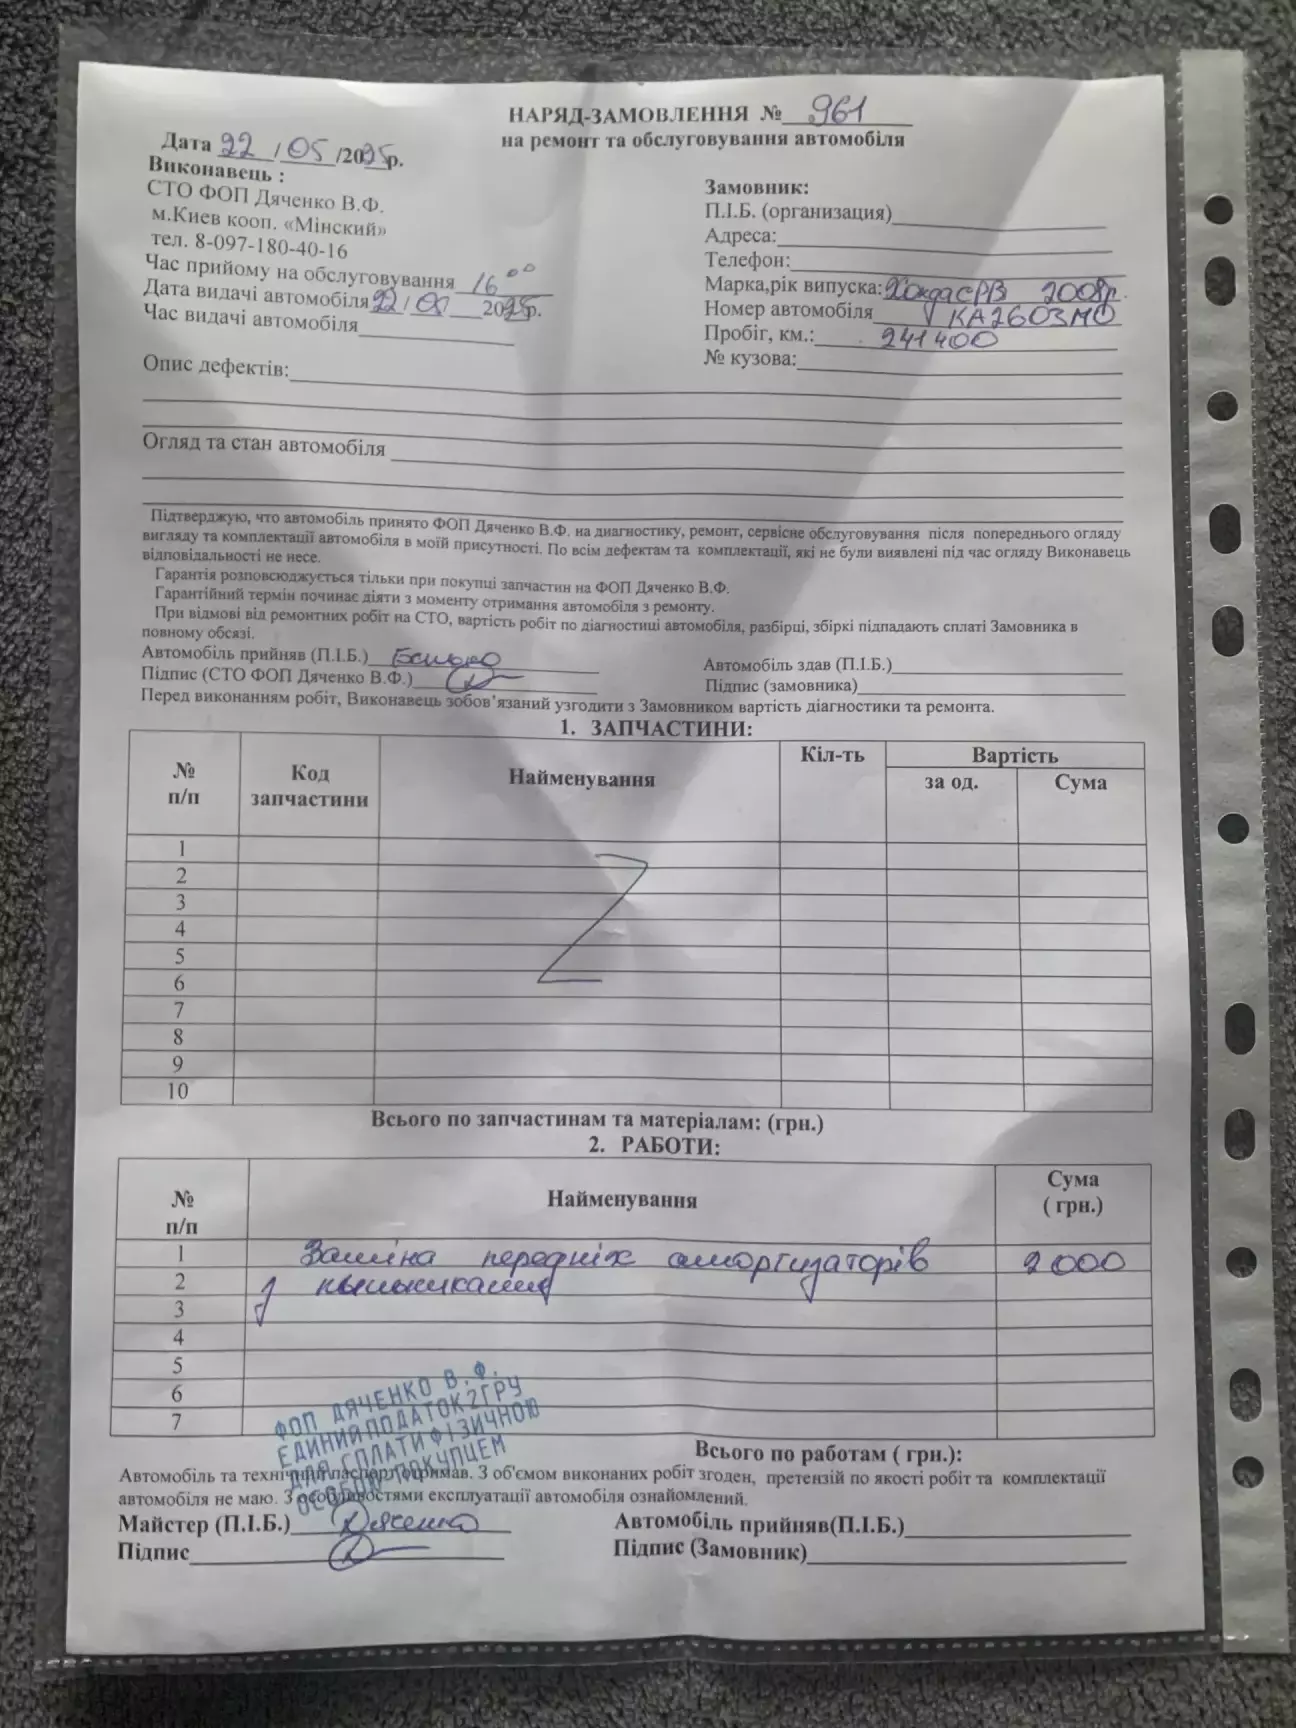 НАРЯД-ЗАМОВЛЕННЯ № 961
на ремонт та обслуговування автомобіля
Дата 22/05/2025р.
Виконавець :
СТО ФОП Дяченко В.Ф.
м.Киев кооп. «Мінский»
тел. 8-097-180-40-16
Час прийому на обслуговування 16 00
Дата видачі автомобіля 22/05/2025р.
Час видачі автомобіля
Замовник:
П.І.Б. (организация)
Адреса:
Телефон:
Марка,рік випуска: Хонда СРВ 2008р.
Номер автомобіля КА2603МО
Пробіг, км.: 241400
№ кузова:
Опис дефектів:
Огляд та стан автомобіля
Підтверджую, что автомобіль принято ФОП Дяченко В.Ф. на диагностику, ремонт, сервісне обслуговування після попереднього огляду
вигляду та комплектації автомобіля в моїй присутності. По всім дефектам та комплектації, які не були виявлені під час огляду Виконавець
відповідальності не несе.
Гарантія розповсюджується тільки при покупці запчастин на ФОП Дяченко В.Ф.
Гарантійний термін починає діяти з моменту отримання автомобіля з ремонту.
При відмові від ремонтних робіт на СТО, вартість робіт по діагностиці автомобіля, разбірці, збіркі підпадають сплаті Замовника в
повному обсязі.
Автомобіль прийняв (П.І.Б.)
Підпис (СТО ФОП Дяченко В.Ф.)
Автомобіль здав (П.І.Б.)
Підпис (замовника)
Перед виконанням робіт, Виконавець зобов’язаний узгодити з Замовником вартість діагностики та ремонта.
1. ЗАПЧАСТИНИ:
№ п/п Код запчастини Найменування Кіл-ть Вартість
за од. Сума
1
2
3
4
5
6
7
8
9
10
Всього по запчастинам та матеріалам: (грн.)
2. РАБОТИ:
№ п/п Найменування Сума ( грн.)
1 Заміна передніх амортизаторів 2000
2 з пыльниками
3
4
5
6
7
ФОП ДЯЧЕНКО В.Ф.
ЕДИНИЙ ПОДАТОК 2ГРУ
ДЛЯ СПЛАТИ ФІЗИЧНОЮ
ОСОБОЮ ПОКУПЦЕМ
Всього по работам ( грн.):
Автомобіль та технічний паспорт отримав. З об'ємом виконаних робіт згоден, претензій по якості робіт та комплектації
автомобіля не маю. З особливостями експлуатації автомобіля ознайомлений.
Майстер (П.І.Б.) Дяченко
Підпис
Автомобіль прийняв(П.І.Б.)
Підпис (Замовник)